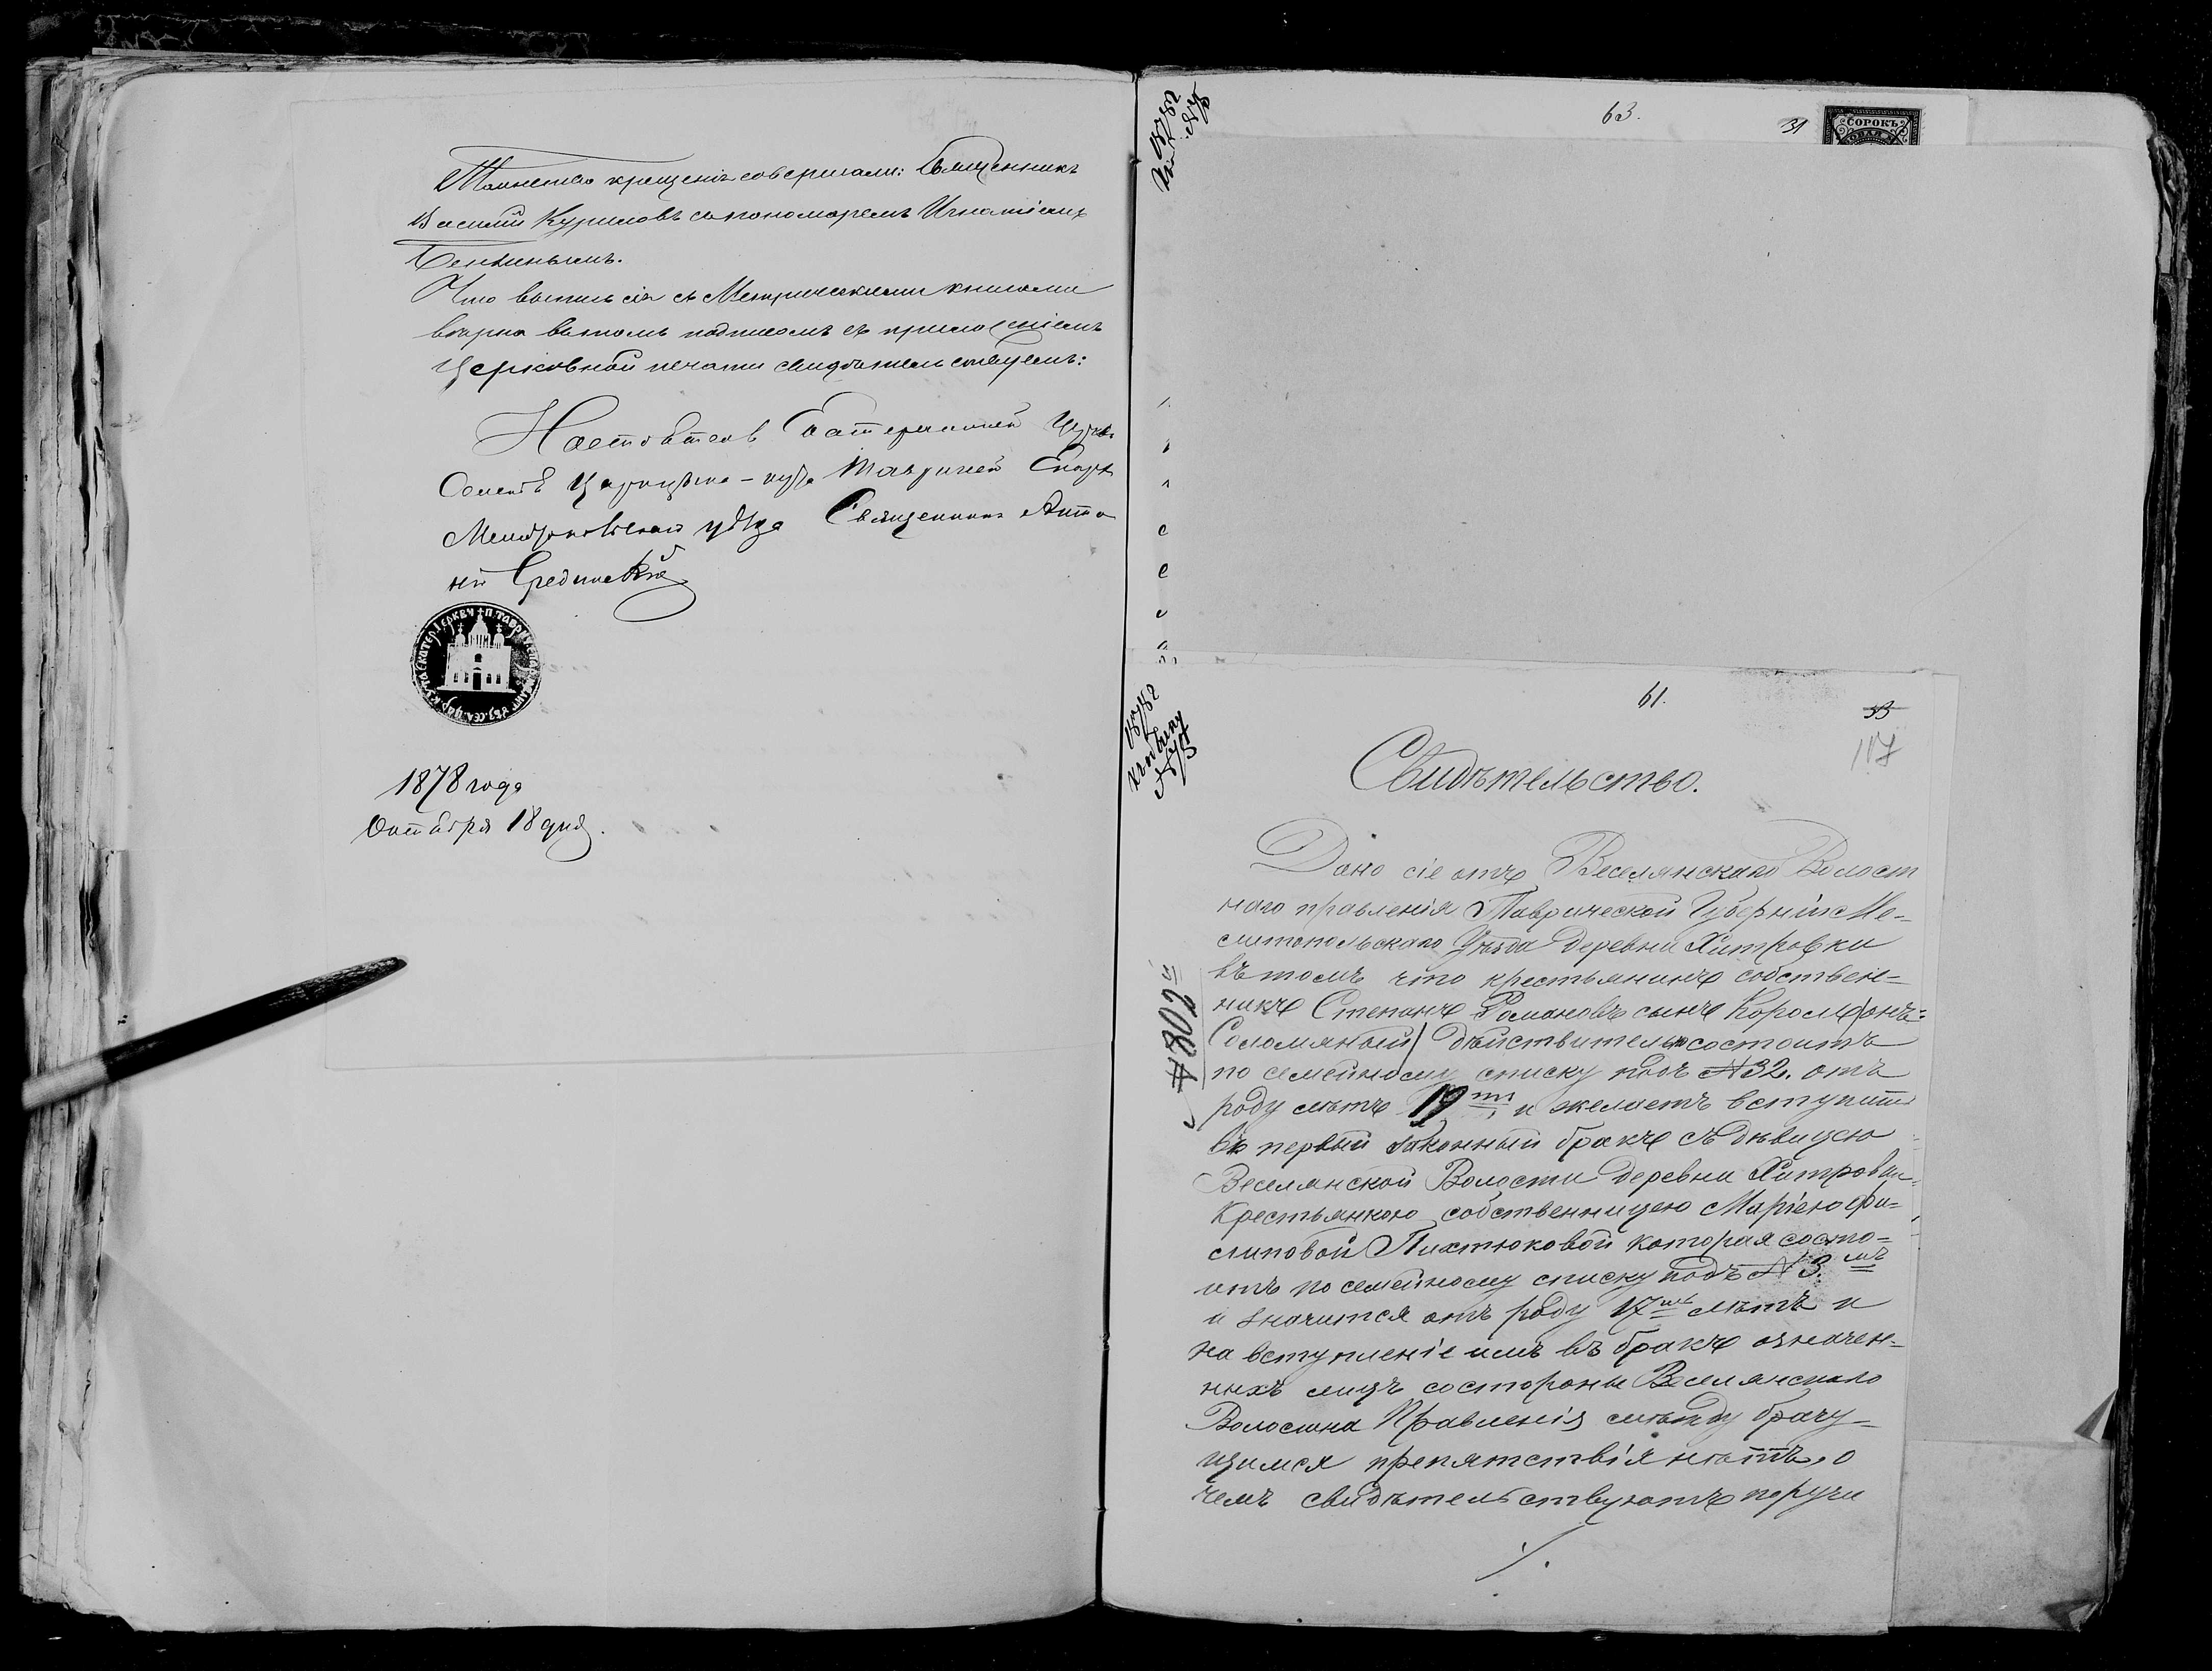 Таинство крещенія совершали: Священникъ
Василій Куриловъ съ пономаремъ Игнатіемъ
Что выпись сія съ Метрическими книгами
вѣрна въ томъ подписомъ съ приложеніемъ
Церковной печати свидѣтельствуемъ:
Настоятель Екатерининской Церкви
Мелитопольскаго уѣзда Священникъ Анто
ній Срединскій
1878 года
Октября 18 дня.
63.
31
СОРОКЪ
61.
33
117
Свидѣтельство.
Дано сіе отъ Веселянскаго Волост
наго правленія Таврической Губерніи Ме-
литопольскаго Уѣзда деревни Хитровки
въ томъ что крестьянинъ собствен-
никъ Степанъ Романовъ сынъ
Соломяный/ дѣйствительно состоитъ
по семейному списку подъ №32. отъ
роду лѣтъ 19ти и желаетъ вступить
въ первый законный бракъ съ дѣвицею
Веселянской Волости деревни Хитровки
Крестьянкою собственницею Маріею Фи-
липовой Пихтюковой которая состо-
итъ по семейному списку подъ №3.мъ
и значится отъ роду 17ть лѣтъ и
на вступленіе имъ въ бракъ означен-
ныхъ лицъ состороны Веселянскаго
Волостна Правленія между брачу-
щимся препятствія нѣтъ, о
чемъ свидѣтельствуютъ поручи